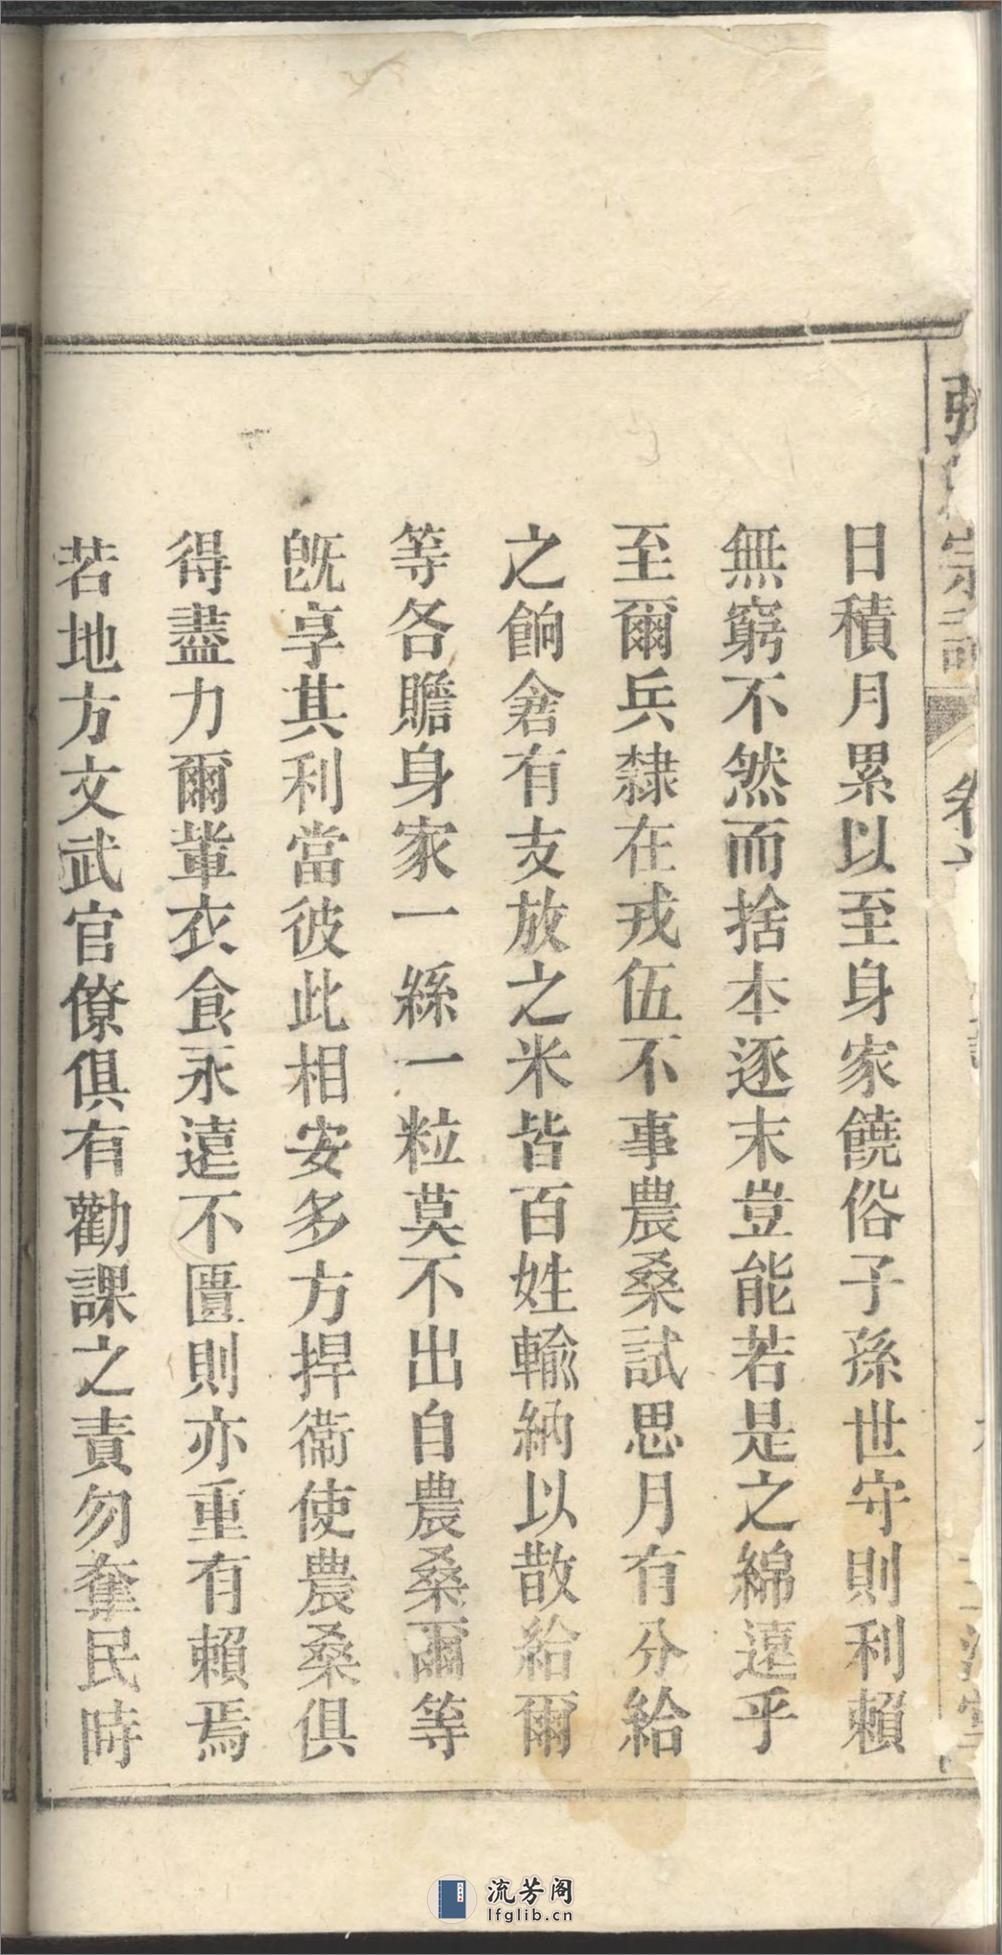 日積月累以至身家饒俗子孫世守則利賴
無窮不然而捨本逐末豈能若是之綿遠乎
至爾兵隸在戎伍不事農桑試思月有分給
之餉倉有支放之米皆百姓輸納以散給爾
等各贍身家一絲一粒莫不出自農桑爾等
旣享其利當彼此相安多方捍衞使農桑俱
得盡力爾軰衣食永遠不匱則亦重有賴焉
若地方文武官僚俱有勸課之責勿奪民時
流芳阁
lfglib.cn